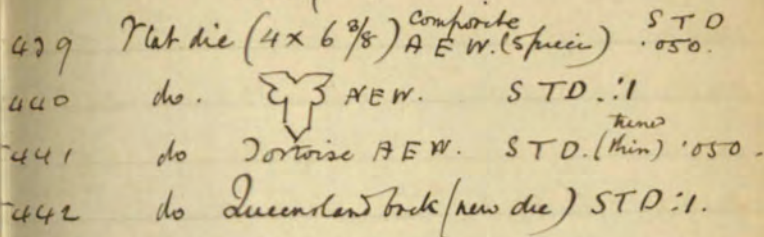 439 Flat die (4 x 6 3/8) Composite A E W. (Specie) S T D .050.
440 do. A E W. S T D. :1
441 do Tortoise A E W. S T D. (thin) .050.
442 do Queensland back (new die) S T D :1.